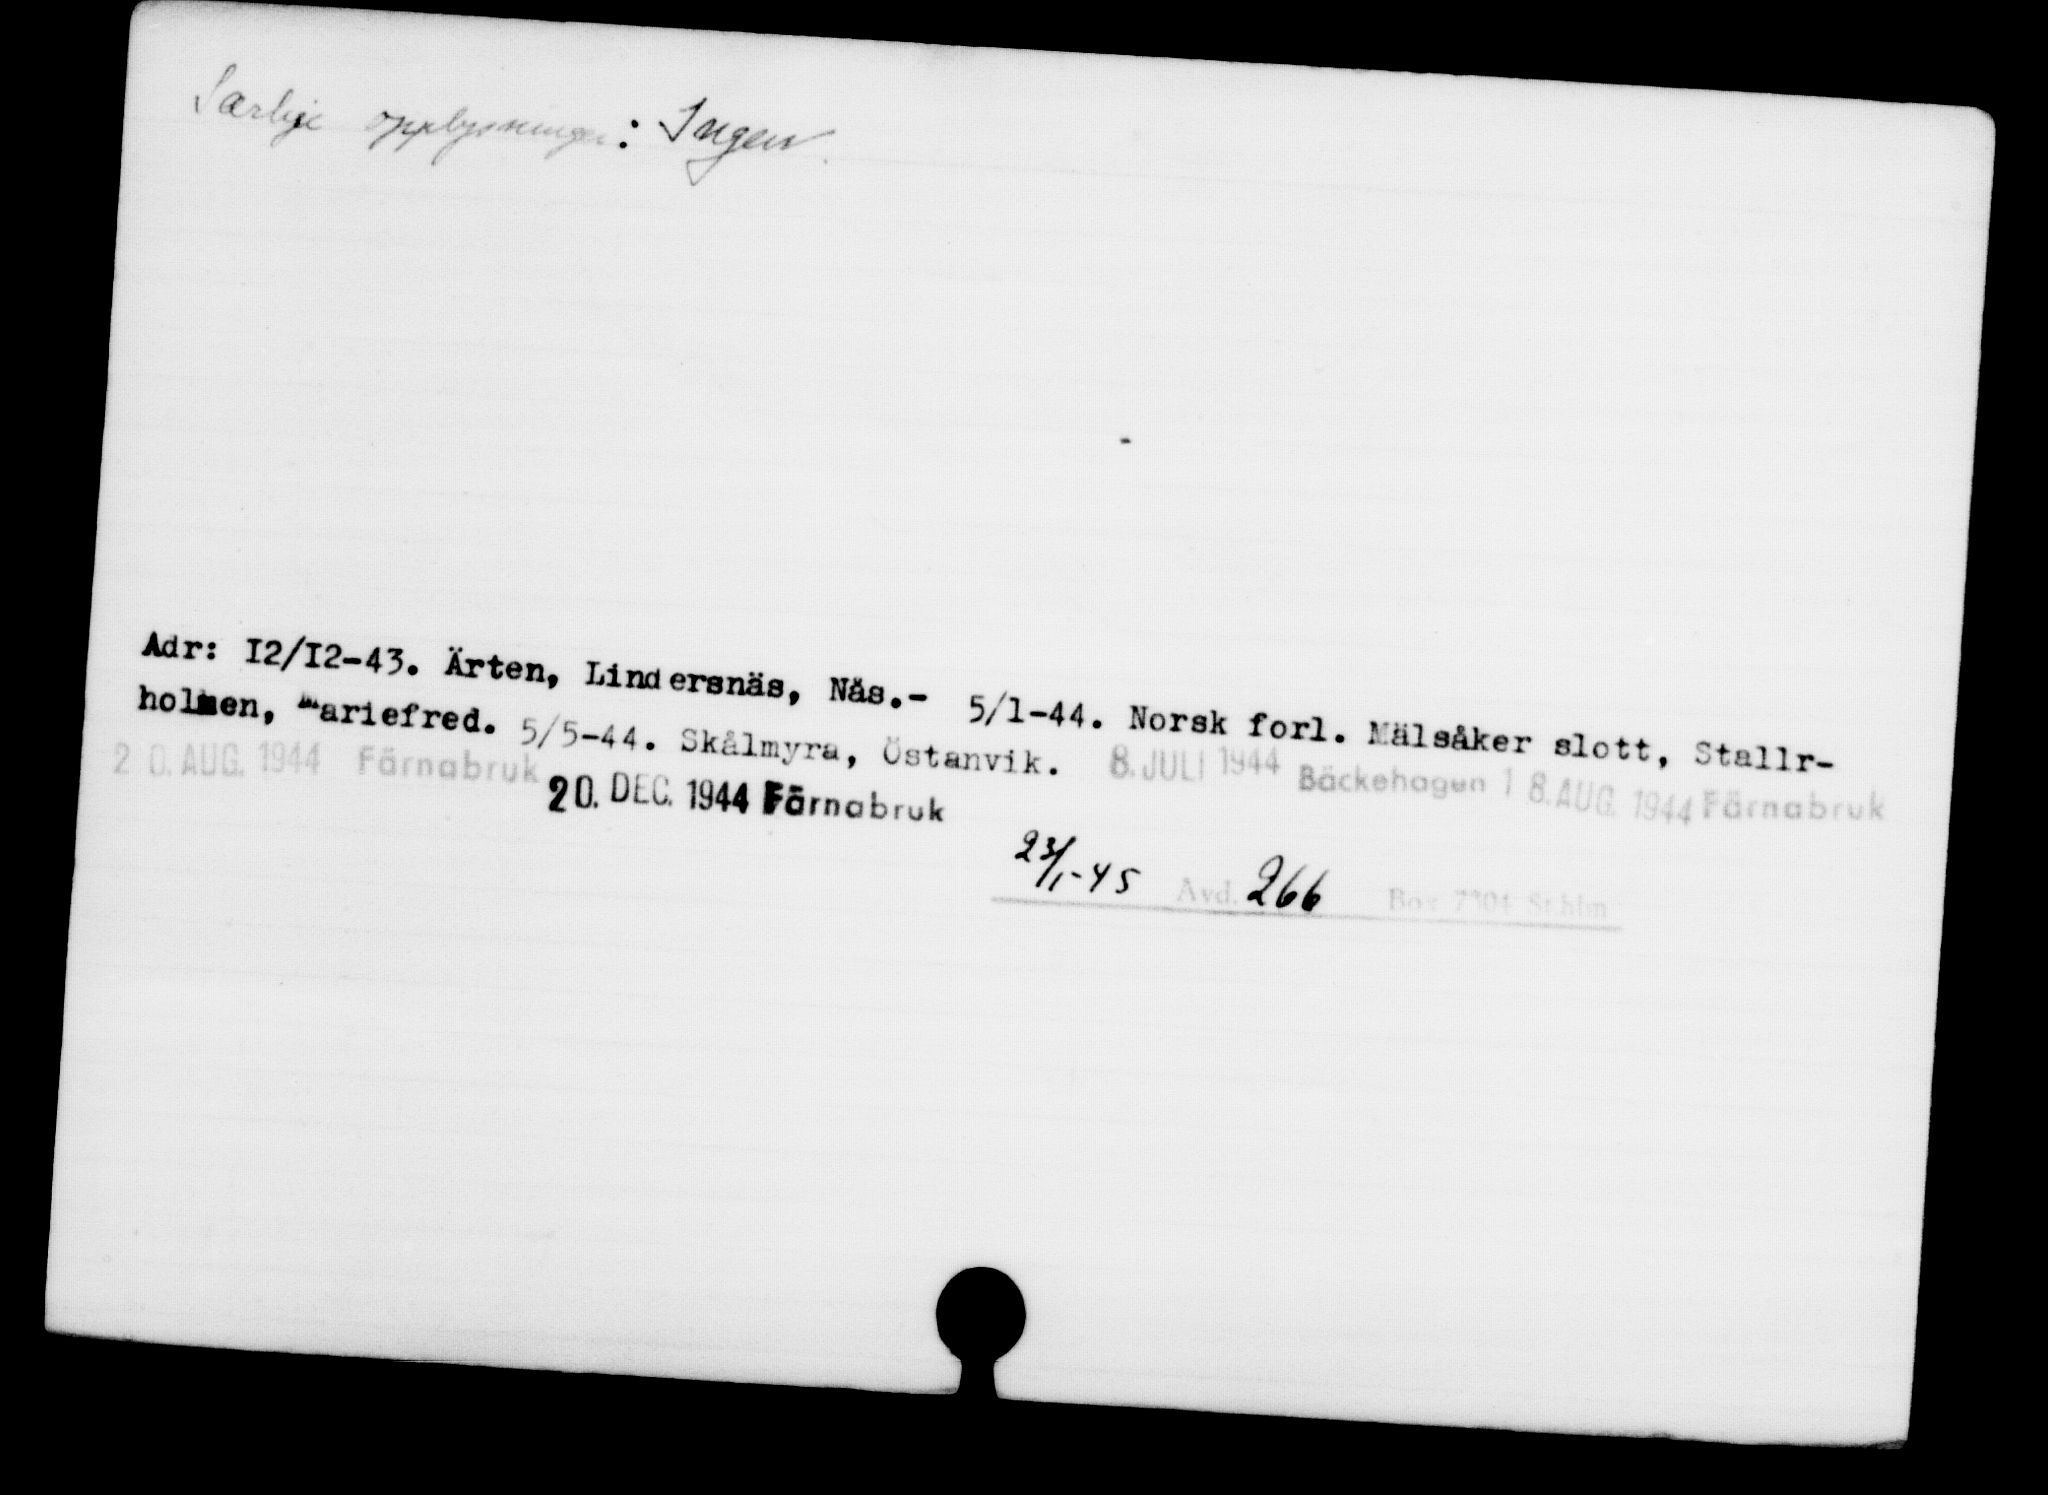 Særlige opplysninger: Ingen.
Adr: I2/I2-43. Ärten, Lindersnäs, Nås.- 5/1-44. Norsk forl. Mälsåker slott, Stallr-
holmen, Mariefred. 5/5-44. Skålmyra, Östanvik. 8. JULI 1944 Bäckehagen 18. AUG. 1944 Färnabruk
20. AUG. 1944 Färnabruk 20. DEC. 1944 Färnabruk
23/1-45 Avd. 266 Box 7304 St.hlm